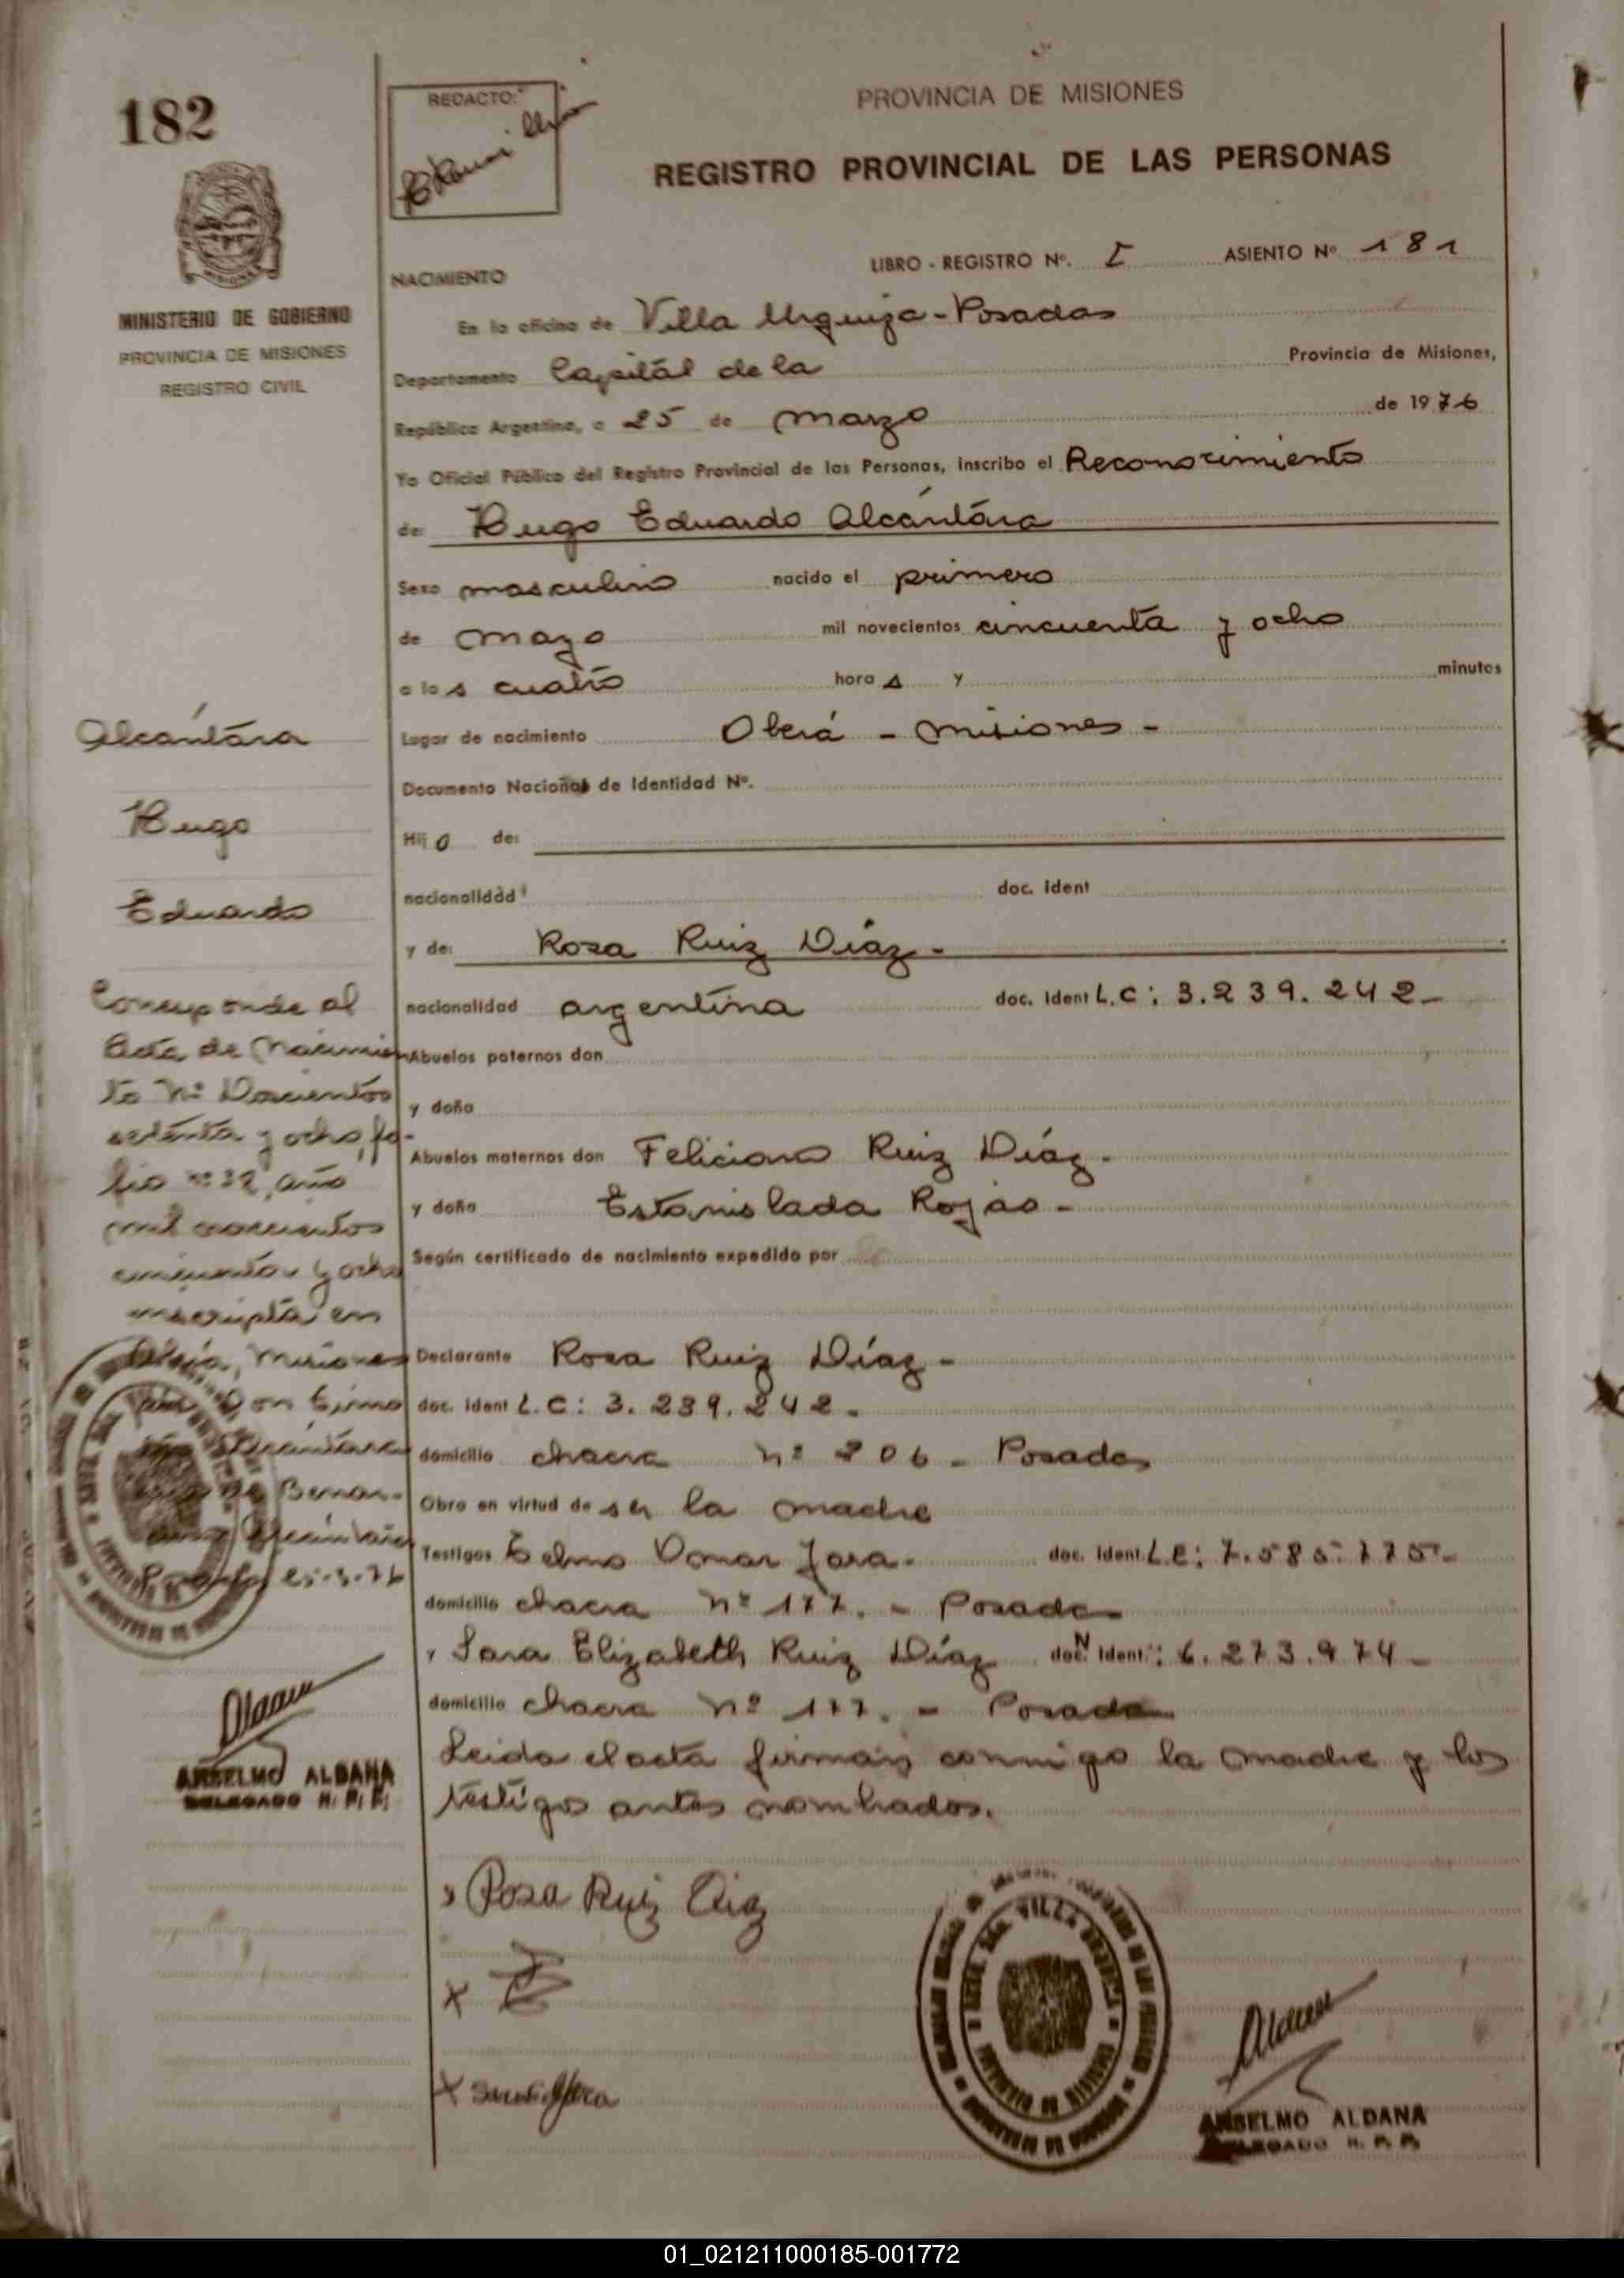 182
REDACTO:
PROVINCIA DE MISIONES
REGISTRO PROVINCIAL DE LAS PERSONAS
MINISTERIO DE GOBIERNO
PROVINCIA DE MISIONES
REGISTRO CIVIL
LIBRO - REGISTRO Nº. I ASIENTO Nº 181
NACIMIENTO
En la oficina de Villa Urquiza - Posadas
Departamento Capitál de la Provincia de Misiones,
República Argentina, a 25 de marzo de 1976
Yo Oficial Público del Registro Provincial de las Personas, inscribo el Reconocimiento
de Hugo Eduardo Alcántára
Sexo masculino nacido el primero
de mayo mil novecientos cincuenta y ocho
a las cuatro hora s y minutos
Lugar de nacimiento Oberá - Misiones -
Documento Nacional de Identidad Nº.
Hijo de:
nacionalidad doc. Ident
y de: Rosa Ruiz Díaz -
nacionalidad argentina doc. Ident L.C: 3.239.242 -
Abuelos paternos don
y doña
Abuelos maternos don Feliciano Ruiz Díaz -
y doña Estanislada Rojas -
Según certificado de nacimiento expedido por
Declarante Rosa Ruiz Díaz -
doc. Ident L.C: 3.239.242 -
domicilio chacra nº 206 - Posadas
Obra en virtud de ser la madre
Testigos Telmo Omar Jara - doc. Ident. L.E: 7.585.775 -
domicilio chacra nº 177. - Posadas
y Sara Elizabeth Ruiz Díaz doc. Ident: 6.273.974 -
domicilio chacra nº 177. - Posadas
Leida el acta firman conmigo la madre y los
testigos antes nombrados.
Rosa Ruiz Diaz
X
X
Alcántára
Hugo
Eduardo
Corresponde al
acta de Nacimien
to Nº Doscientos
setenta y ocho, fo-
lio nº 32, año
mil novecientos
cincuenta y ocho
inscripta en
Misiones
25-3-76
Aldana
ANSELMO ALDANA
DELEGADO R. P. P.
VILLA URQUIZA
Aldana
ANSELMO ALDANA
DELEGADO R. P. P.
01_021211000185-001772